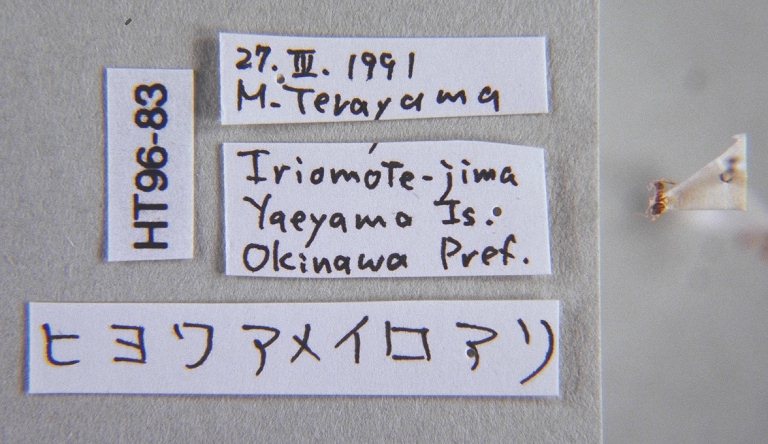 HT96-83
27.III.1991
M.Terayama
Iriomote-jima
Yaeyama Is.
Okinawa Pref.
ヒヨワアメイロアリ